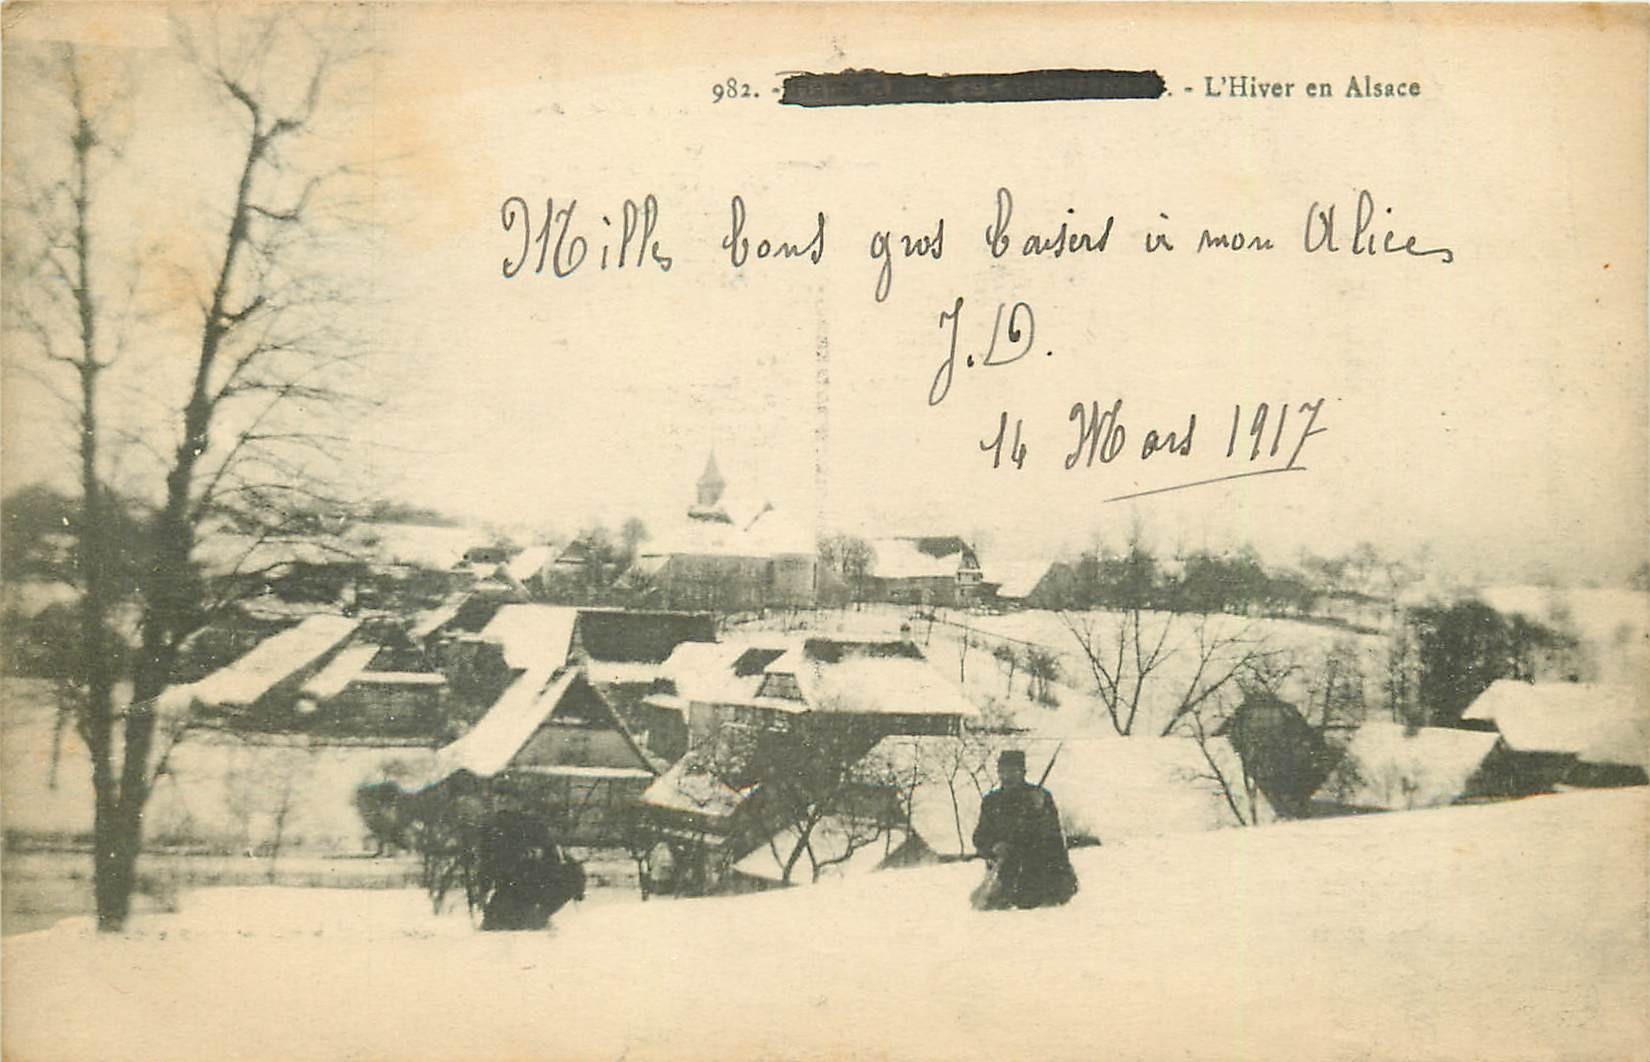 982. - - L'Hiver en Alsace
Mille bons gros baisers à mon Alice
J.D.
14 Mars 1917